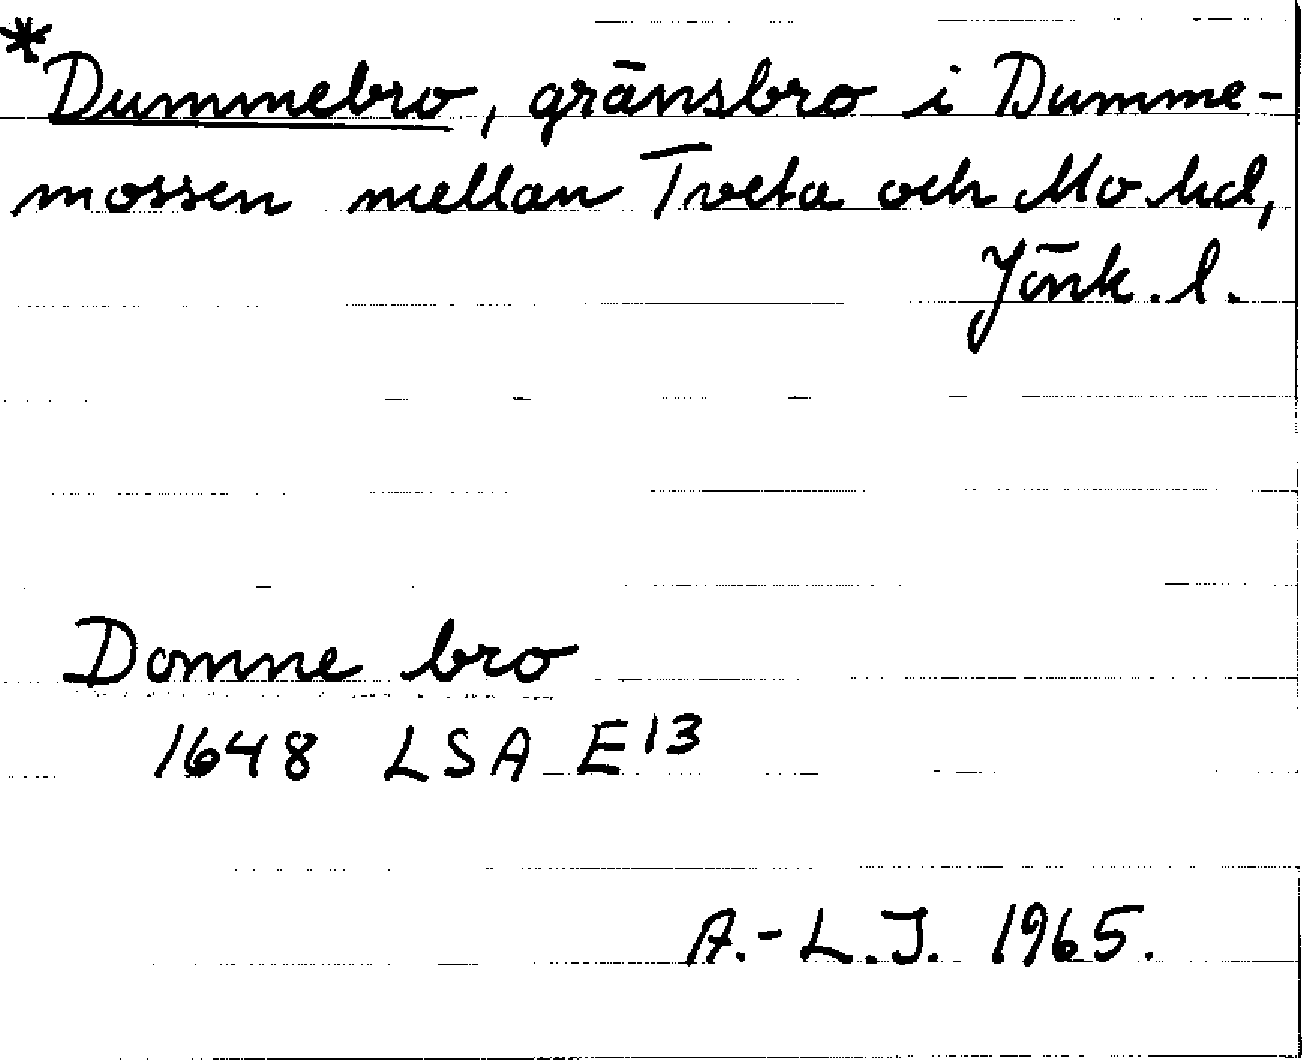 *Dummebro, gränsbro i Dumme-
mossen mellan Tveta och Mo hd,
Jönk. l.
Domne bro
1648 LSA E13
A.-L.J. 1965.